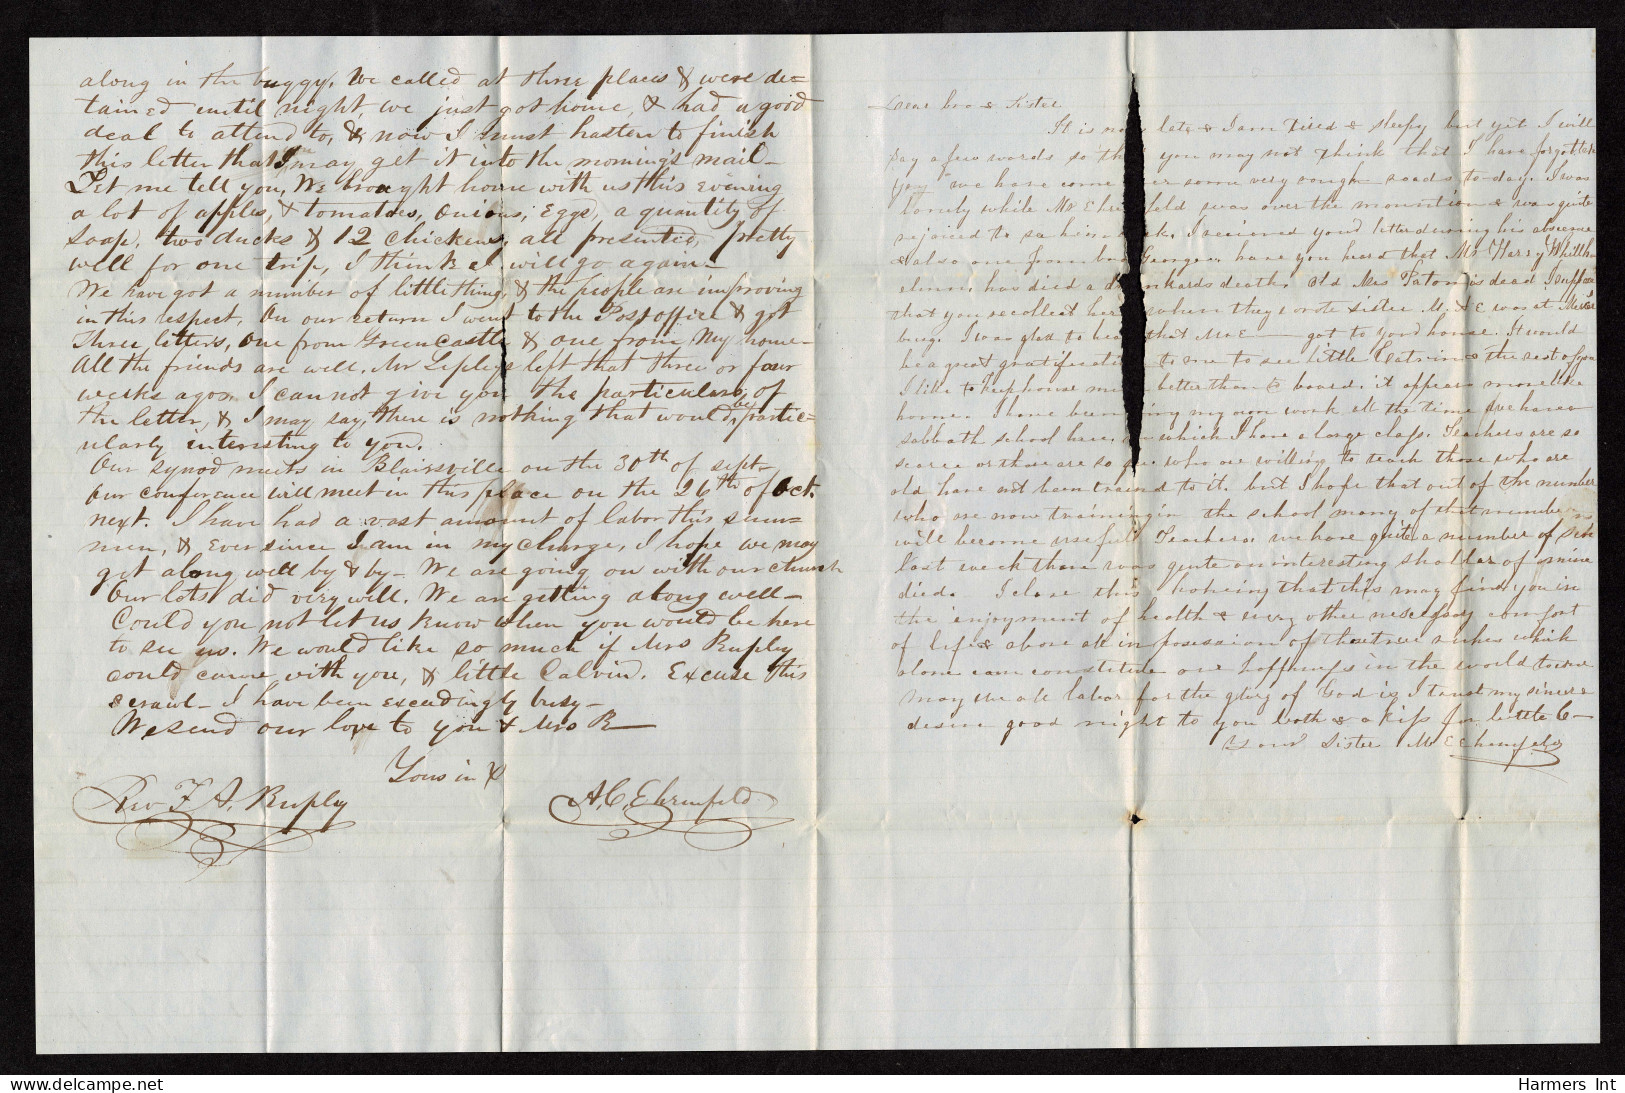 along in the buggy. We called at three places & were de=
tained until night, we just got home, & had a good
deal to attend to, & now I must hasten to finish
this letter that I may get it into the morning's mail—
Let me tell you, We brought home with us this evening
a lot of apples, & tomatoes, onions, eggs, a quantity of
soap, two ducks & 12 chickens, all presented, pretty
well for one trip, I think I will go again—
We have got a number of little things, & the people are improving
in this respect. On our return I went to the Post office & got
Three letters, one from Greencastle & one from My home—
All the friends are well, Mr Lepleys left that three or four
weeks ago. I cannot give you the particulars, of
the letter, & I may say, there is nothing that would be partic=
ularly interesting to you.
Our synod meets in Blairsville on the 30th of sept—
Our conference will meet in this place on the 26th of Oct.
next. I have had a vast amount of labor this sum=
mer, & ever since I am in my charge, I hope we may
get along well by & by— We are going on with our church
Our lots did very well. We are getting along well—
Could you not let us know when you would be here
to see us. We would like so much if Mrs Rupley
could come with you, & little Calvin. Excuse this
scrawl— I have been exceedingly busy—
We send our love to you & Mrs R—
Yours in X
Rev F. A. Rupley
A. C. Ehrenfeld
Dear bro & Sister
It is now late & I am tired & sleepy but yet I will
say a few words so you may not think that I have forgotten
you we have come over some very rough roads to-day. I was
lonely while Mr Ehrenfeld was over the mountion & was quite
rejoiced to se him I recieved your letter during his absence
& also one from bro George. have you heard that Mr Harry Whillh
elmn, has died a drunkards death. Old Mrs Paton is dead I suppose
that you recollect her when they wrote sister M. & E was at
burg. I was glad to hear that Mr E— got to your house. It would
be a great gratification to me to see little Calvin & the rest of you
I like to keep house much better than to board; it appears more like
home. I have been doing my own work all the time We have a
sabbath school here, in which I have a large class. Teachers are so
scarce or those are so who are willing to teach those who are
old have not been trained to it. but I hope that out of the number
who are now training in the school many of that number
will become useful Teachers. we have quite a number of sick
last week there was quite an interesting shollar of mine
died. I close this hopeing that this may find you in
the enjoyment of health & every other nescessary comfort
of life & above all in possession of the true riches which
alone can constitute our happiness in the world to come
may we all labor for the glory of God is I trust my sincere
desire good night to you both & a kiss for little C—
Your Sister M E Ehrenfeld
Harmers Int